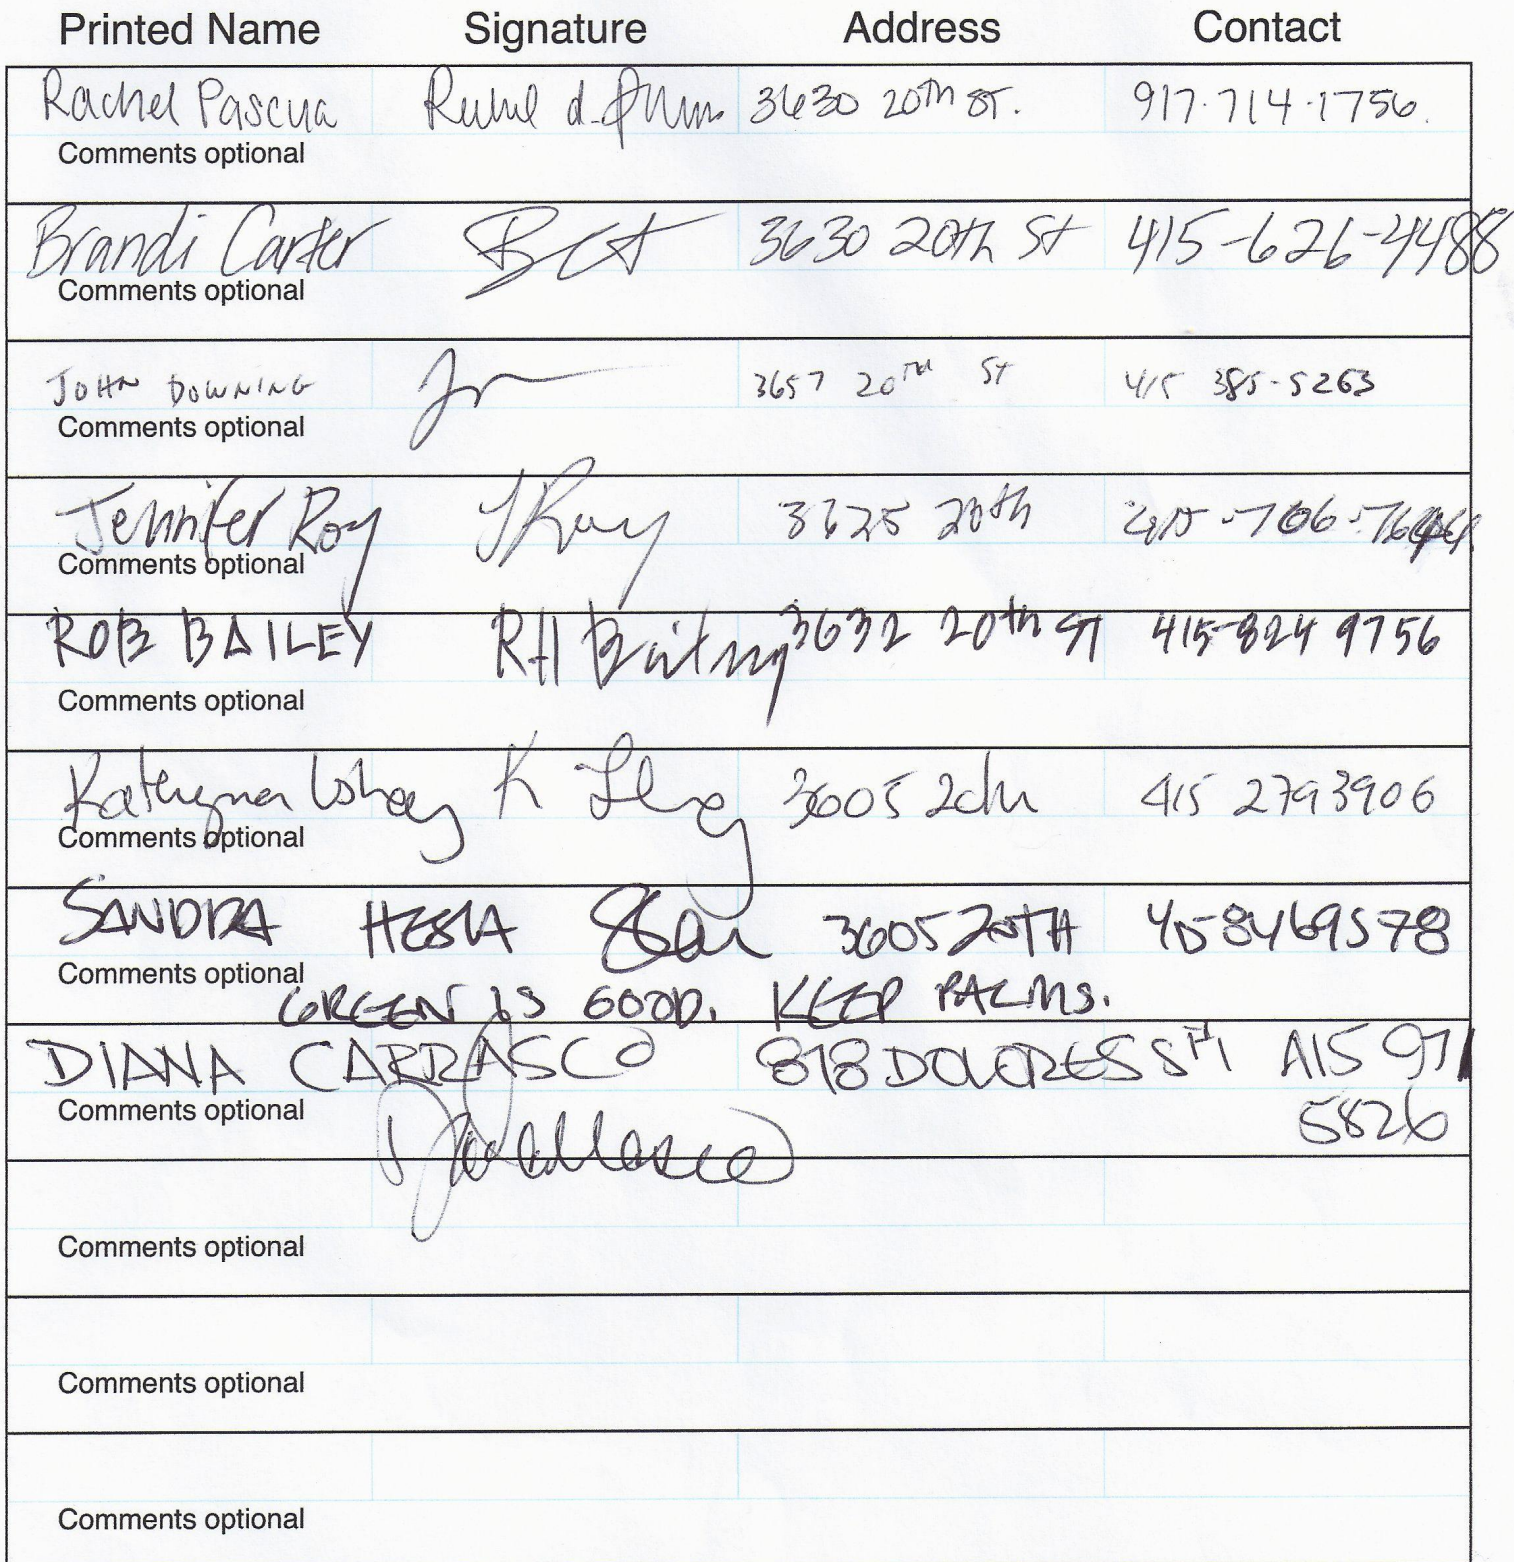 Printed Name Signature Address Contact
Rachel Pascua 3630 20TH ST. 917.714.1756.
Comments optional
Brandi Carter 3630 20th St 415-626-4488
Comments optional
JOHN DOWNING 3657 20TH St 415 385-5263
Comments optional
Jennifer Roy JRoy 3625 20th 415-706-
Comments optional
ROB BAILEY 3632 20th ST 415-824 9756
Comments optional
K 3605 415 2793906
Comments optional
SANDRA HESLA 3605 20TH 415 8469578
Comments optional
GREEN IS GOOD. KEEP PALMS.
DIANA CARRASCO 818 DOLORES ST 415 971
Comments optional 5826
Comments optional
Comments optional
Comments optional